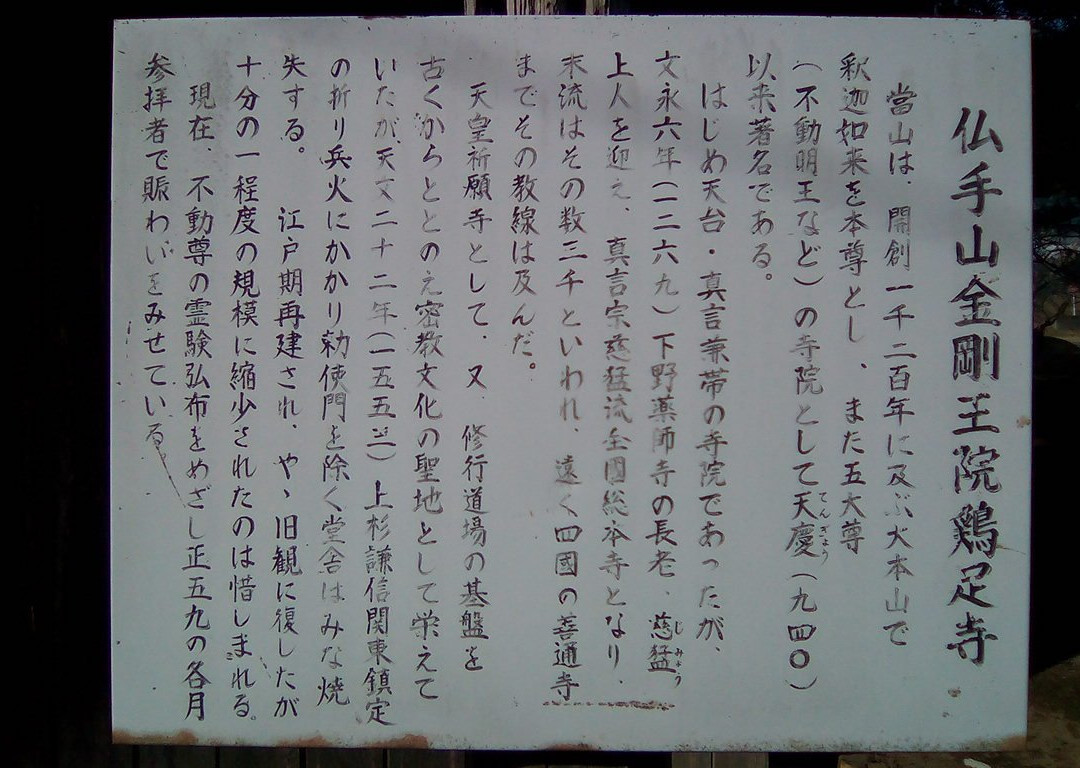 仏手山金剛王院鶏足寺
當山は、開創一千二百年に及ぶ大本山で
釈迦如来を本尊とし、また五大尊
（不動明王など）の寺院として天慶（九四〇）
てんぎょう
以来著名である。
はじめ天台・真言兼帯の寺院であったが、
文永六年（一二六九）下野薬師寺の長老、慈猛
じみょう
上人を迎え、真言宗慈猛流全國総本寺となり、
末流はその数三千といわれ、遠く四國の善通寺
までその教線は及んだ。
天皇祈願寺として、又、修行道場の基盤を
古くからととのえ密教文化の聖地として栄えて
いたが、天文二十二年（一五五三）上杉謙信関東鎮定
の折り兵火にかかり勅使門を除く堂舎はみな焼
失する。江戸期再建され、やゝ旧観に復したが
十分の一程度の規模に縮少されたのは惜しまれる。
現在、不動尊の霊験弘布をめざし正五九の各月
参拝者で賑わいをみせている